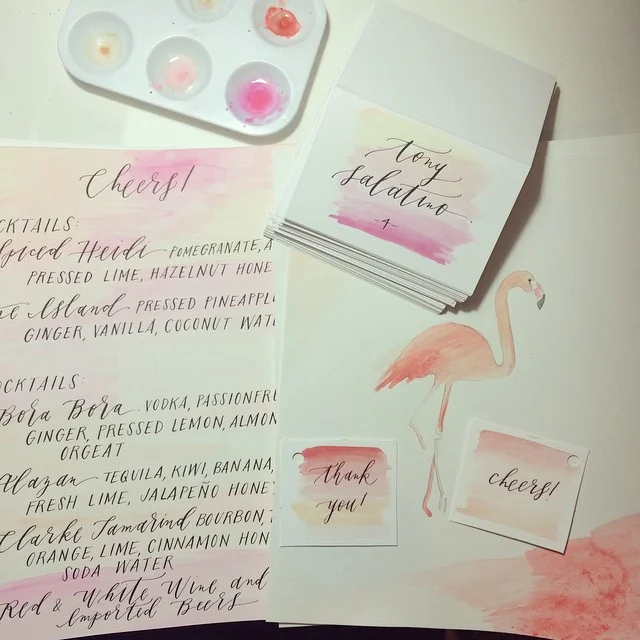 Cheers!
CKTAILS:
Spiced Heidi POMEGRANATE, A
PRESSED LIME, HAZELNUT HONE
Island PRESSED PINEAPPL
GINGER, VANILLA, COCONUT WATE
CKTAILS:
Bora Bora VODKA, PASSIONFRU
GINGER, PRESSED LEMON, ALMON
ORGEAT
TEQUILA, KIWI, BANANA,
FRESH LIME, JALAPEÑO HONEY
Clarke Tamarind BOURBON, T
ORANGE, LIME, CINNAMON HON
SODA WATER
Red & White Wine and
Imported Beers
tony
salatino
-4-
thank
you!
cheers!